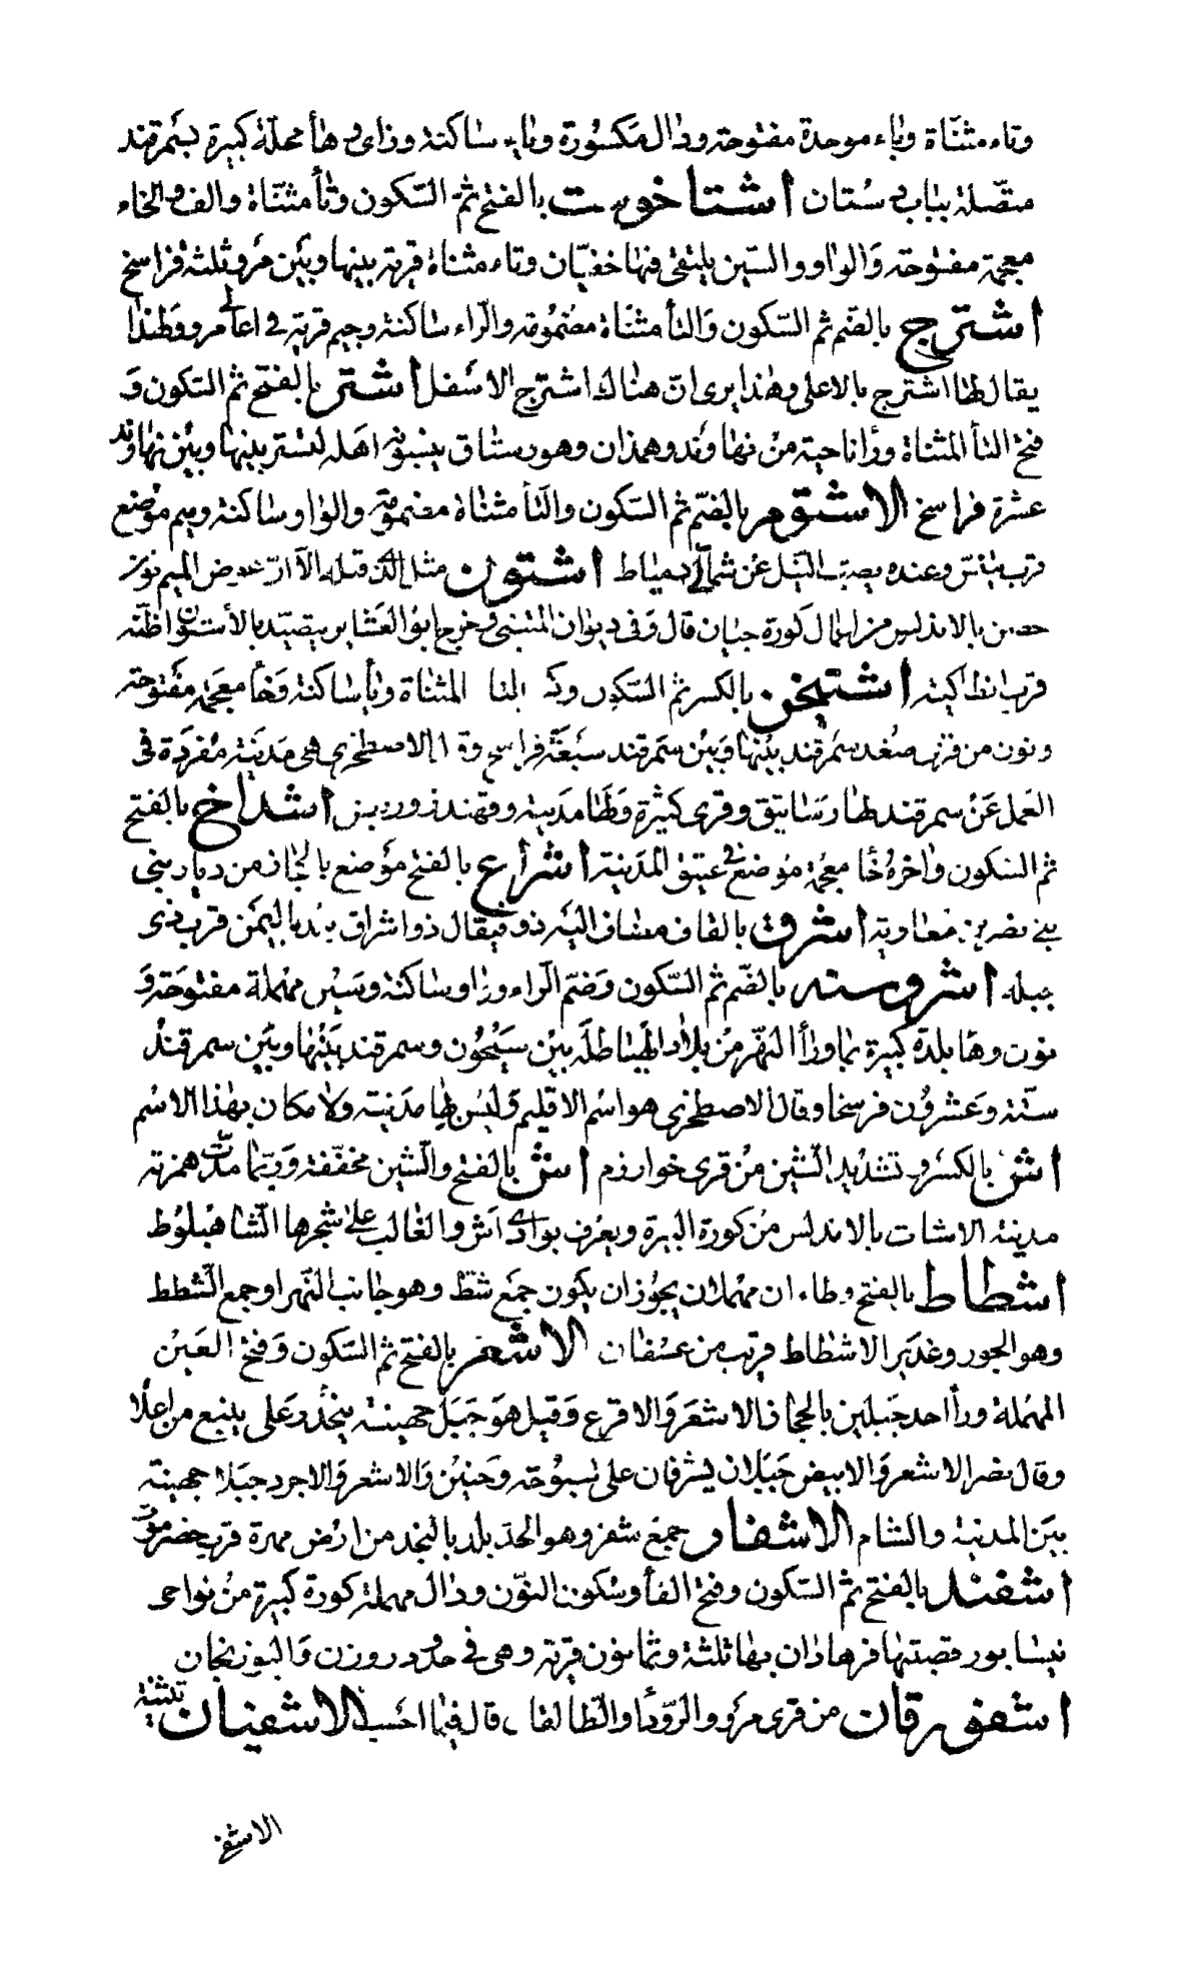 وتاء مثنّاة وباء موحدة مفتوحة ودال مكسورة وياء ساكنة وزاى وهأ محلّة كبيرة بسَمرقند
متصّلة بباب دستان اشتاخوست بالفتح ثمّ السّكون وتأ مثنّاة والف والخاء
معجمة مفتوحة والواو والسّين يلتقى فيها خفيّان وتاء مثناة قرية بينها وبَين مَرو ثلثة فراسخ
اشترج بالضّم ثم السّكون والتأ مثنَاة مضمُومة والرّاء ساكنة وجيم قرية فى اعالى مرو وَلهذا
يقال لها اشترج بالاعلى وهٰذا يرى انّ هناك اشترج الاسفل اشتر بالفتح ثم السكون وَ
فتح التأ المثناة ورأ ناحية مِنْ نهاوَند وهمذان وهو رستاق ينسبونه اهله لتستر بينها وبَيْن نهاوند
عشرة فراسخ الاشتوم بالضّم ثم السّكون والتأ مثناة مضمومة والواو ساكنة وميم موْضع
قرب تنّيس وعنده يصبّ النيل عن شمالى دمياط اشتون مثل الذى قبله الّا انّ عوض الميم نون
حصن بالاندلس من اعمال كورة جيان قال وَفى ديوان المتنبى وخرج ابو العَشاير يتصيّد بالأستون اظنّه
قرب انطاكية اشتيخن بالكسر ثم السّكون وكسر التا المثناة ويأ ساكنة وَخأ معجَمة مَفتوحة
ونون من قرى صُغد سمَرقند بيْنها وَبَيْن سَمرقند سَبعَة فراسخ وقال الاصطخرى هى مَدينَة مُفرَدة فى
العَمل عَنْ سمرقند لها رسَاتيق وقرى كثيرة وَلهَا مَدينة وقهندز وربض اشداخ بالفتح
ثم السّكون واخرهُ خأ معجمَة مُوضع فى عتيق المَدينة اشراع بالفتح مَوضع بالحجاز من ديار بنى
بنى نصر بن مُعاوية اشرق بالقاف مضاف اليَه ذو فيقال ذو اشراق بلد باليمَن قرب ذى
جبله اشروسنه بالضّم ثم السّكون وَضمّ الرّاء وواو ساكنة وسَيْن مهملة مفتوحَة وَ
نون وهَا بلدة كبيرة بما ورأ النهر مِنْ بلاد الهيَاطلَة بيْن سَيْحُون وسمرقند بَيْنها وبَيْن سمرقند
ستّة وَعشرون فرسخا وقال الاصطخرى هو اسْم الاقليم وَليْس لها مدَينة ولا مكان بهٰذا الاسْم
اشّ بالكسر وتشديد الشّين مِنْ قرى خوارزم اش بالفتح والشين مخفّفة وَربّما مدّت همزته
مدينة الاشات بالاندلس مِنْ كورة البيرة ويعْرف بوادى اَش والغالب على شجرها الشّاهبلوط
اشطاط بالفتح وطاء ان مهملان يجوُز ان يكون جمَع شطّ وهو جانب النّهر او جمع الشّطط
وهو الجور وغدَير الاشطاط قريب من عسفان الاشعر بالفتح ثم السّكون وَفتح العَيْن
المهَملة ورأ احد جَبلين بالحجاز الاشعَر وَالاقرع وَقيل هوَ جَبَل جهينة ينحْدر على ينبع من اعلا
وقال نصر الاشعر وَالابيض جَبَلان يشرفان على سبوُحة وحَنيْن وَالاشعر وَالاجرد جبَلا جهينة
بيَن المدينة والشام الاشفار جمَع شفر وهو الحدّ بلد بالنجد من ارض مهرة قرب حضرموت
اشفند بالفتح ثم السّكون وفتح الفأ وسكون النّون ودال مهملة كورة كبيرة مِنْ نواحى
نيسَابور قصبتها فرهادان بها ثلثة وثمانون قرية وهى فى حدود روزن وَالبوزنجان
اشفورقان من قرى مرَو والرّوذ والطّالقان قال فيما احسب الاشفيان تثنية
الاشفى